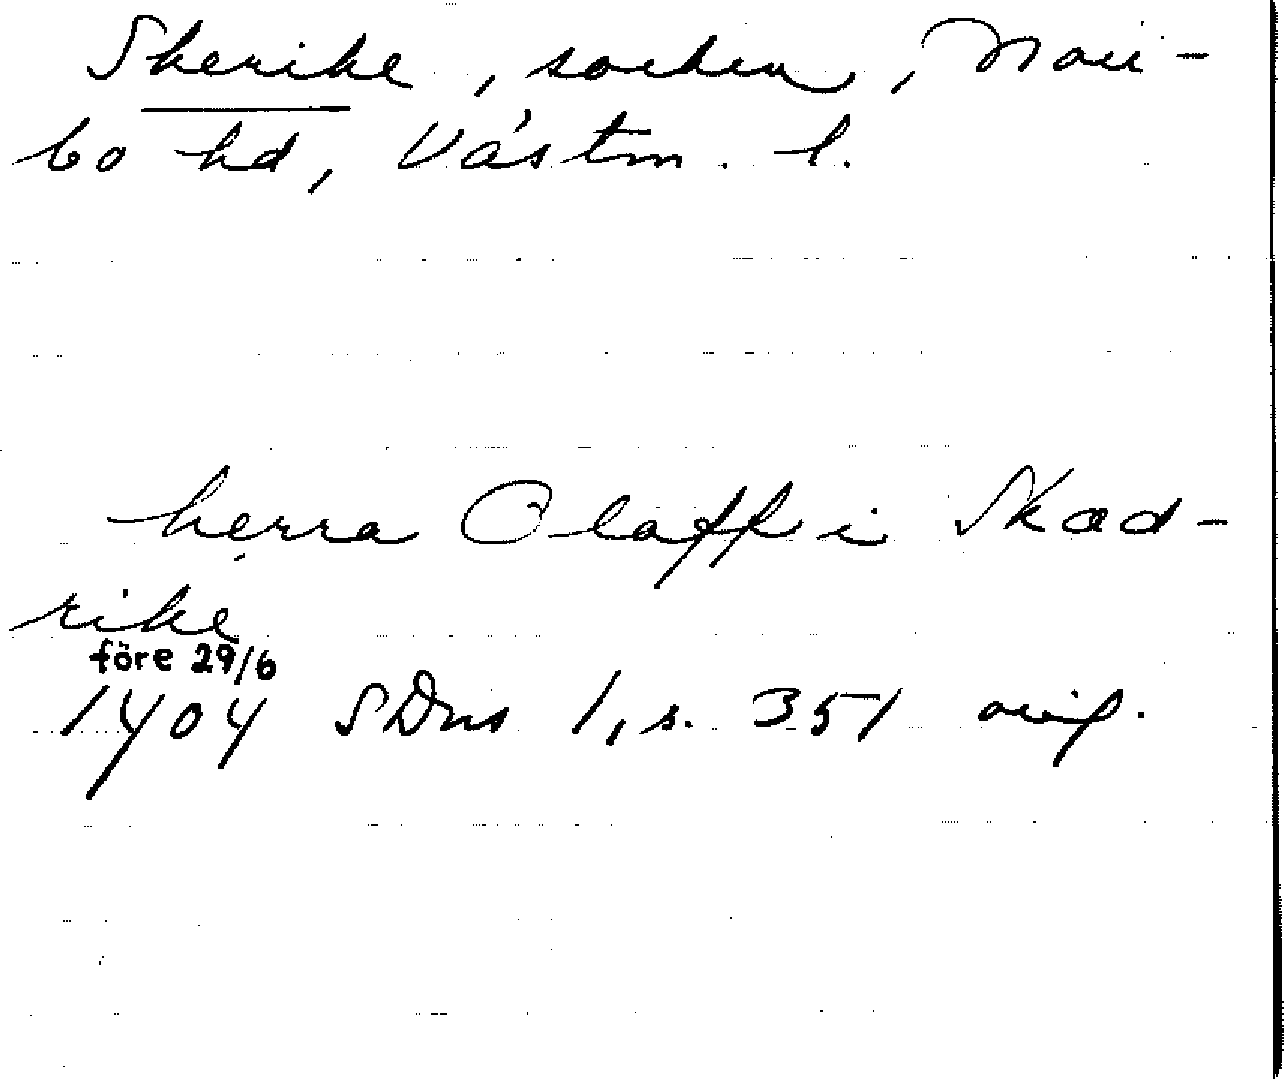 Skerike, socken, Norr-
bo hd, Västm. l.
herra Olaff i Skæd-
rike
före 29/6
1404 SDns 1, s. 351 orig.